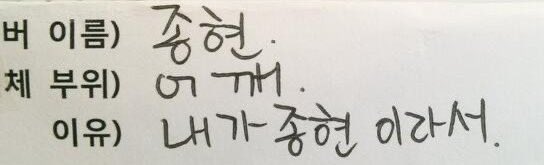 버 이름) 종현.
체 부위) 어깨.
이유) 내가 종현이라서.